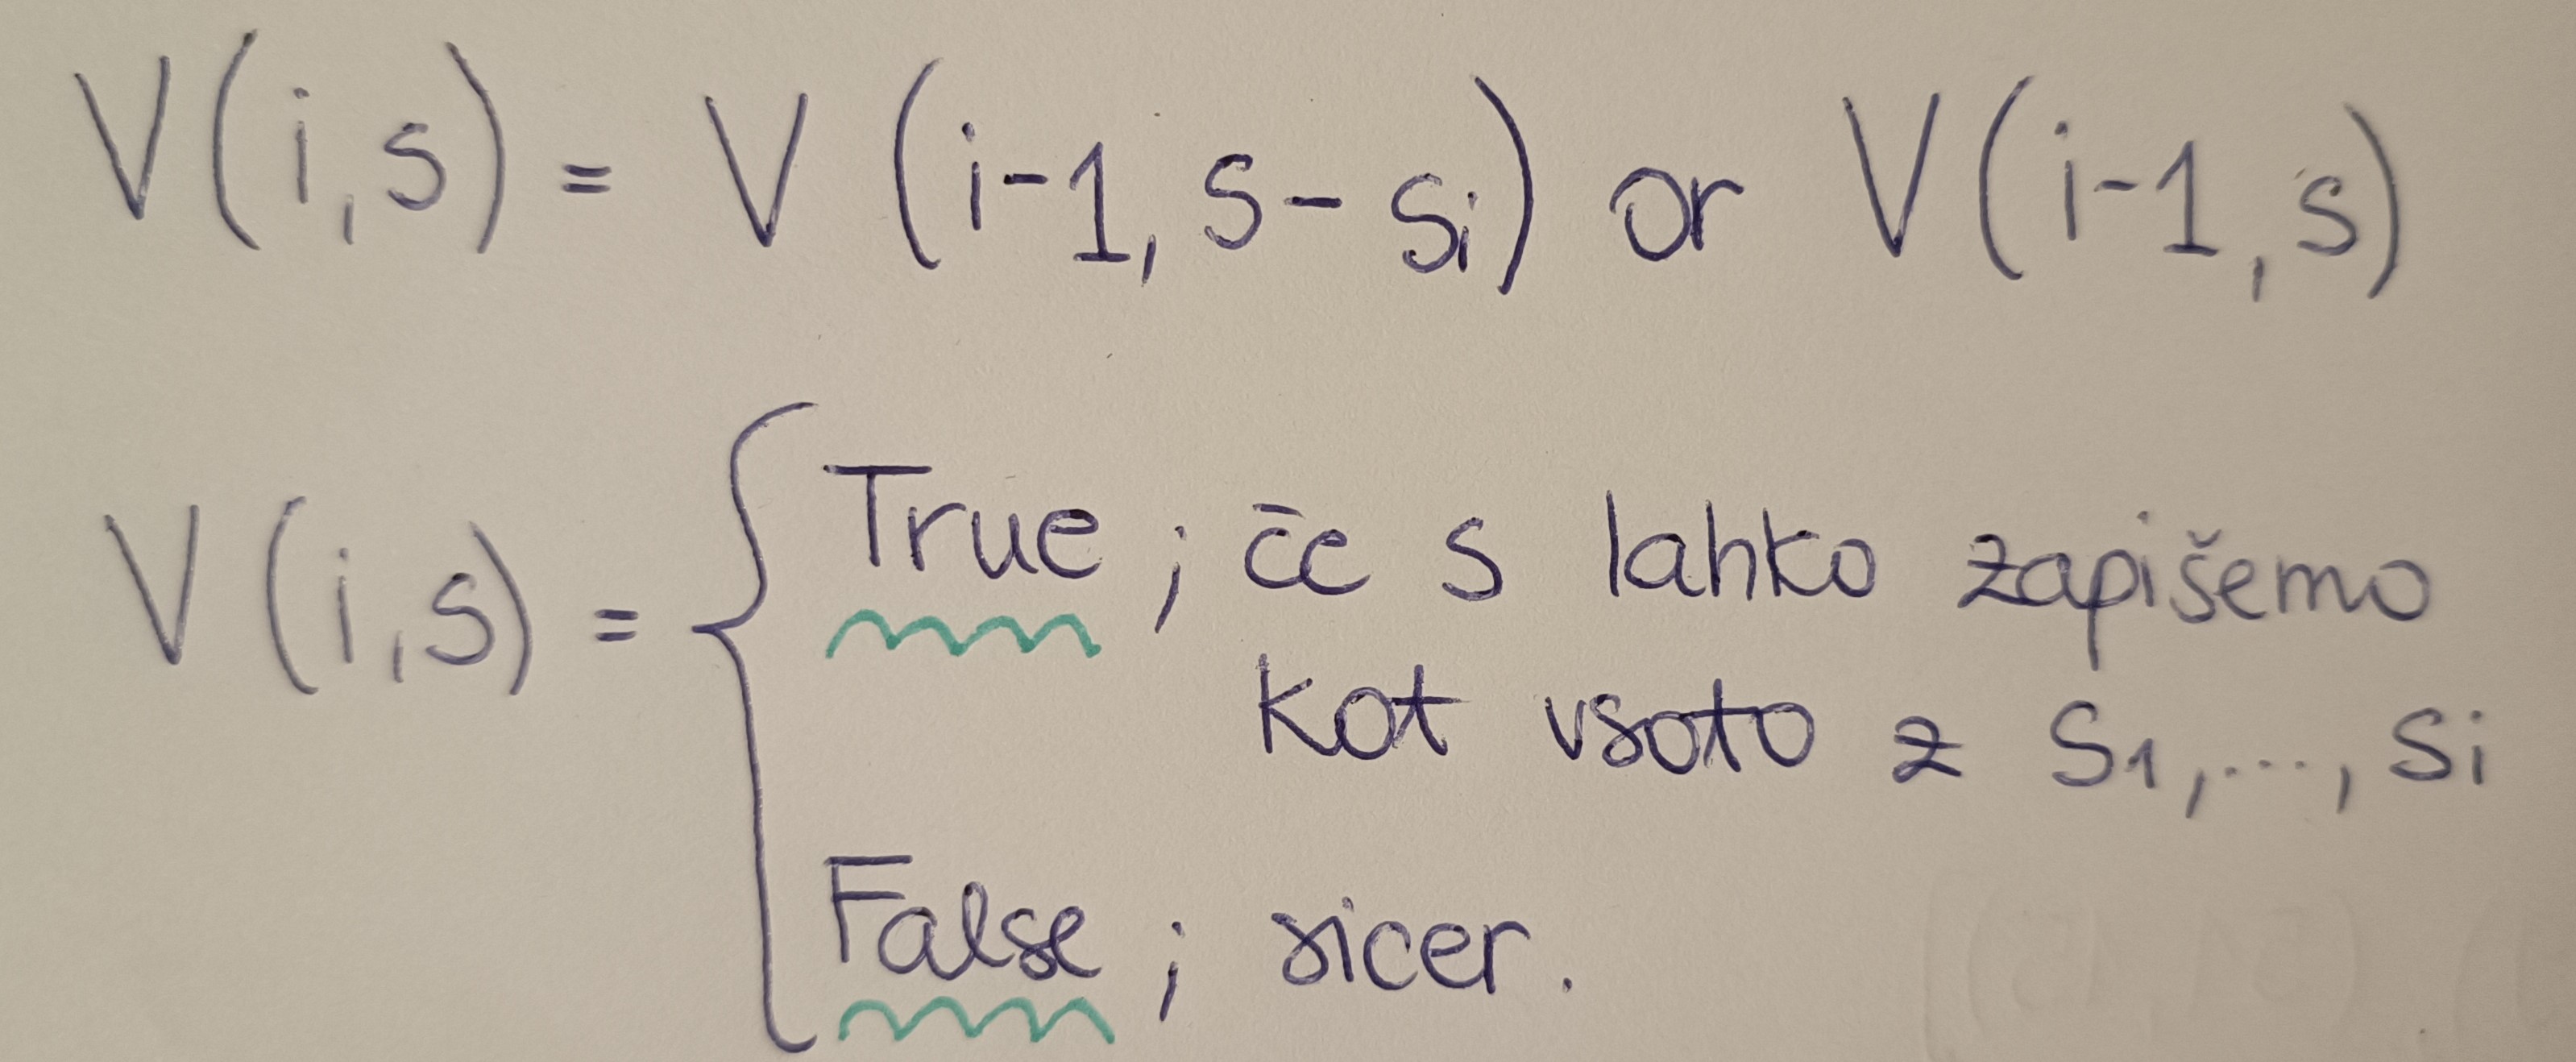 V(i,s) = V(i-1, s-sᵢ) or V(i-1,s)
V(i,s) = { True ; če s lahko zapišemo
kot vsoto z s₁,...,sᵢ
False ; sicer.